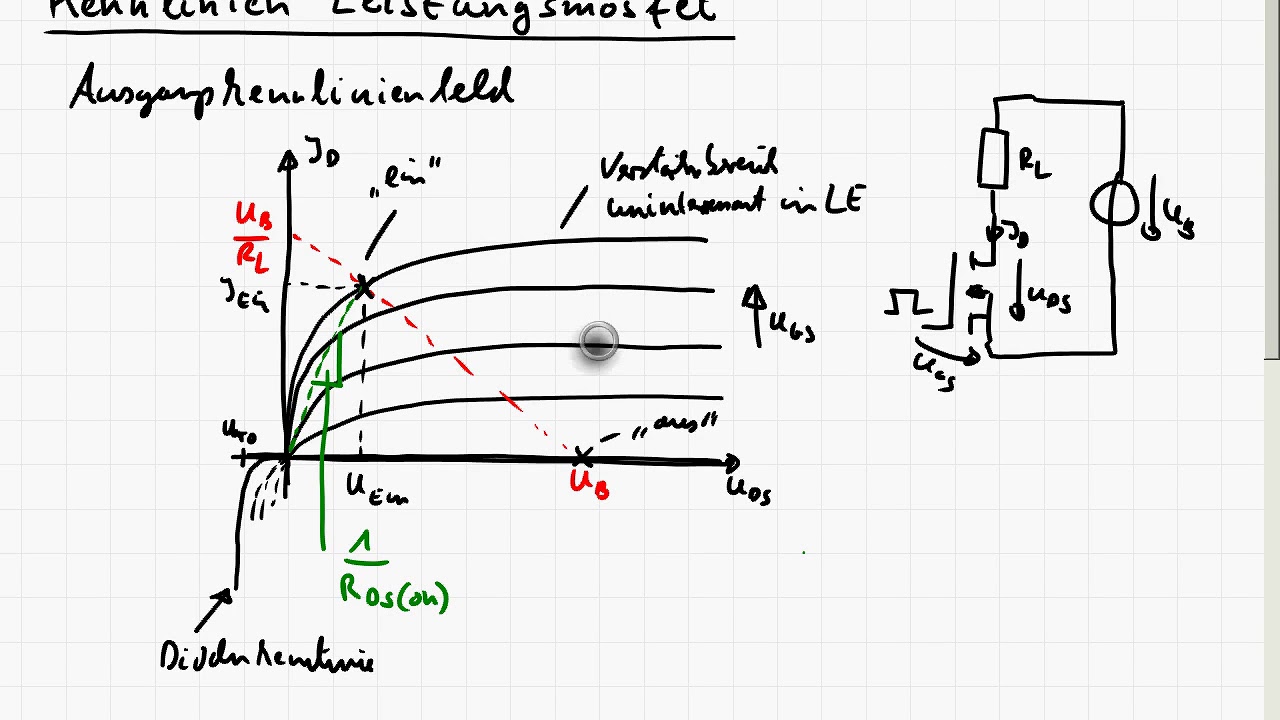 Kennlinien Leistungsmosfet
Ausgangskennlinienfeld
I_D
„ein“
Verstärkbereich
uninteressant in LE
U_B
R_L
I_Ein
U_GS
U_T0
U_Ein
„aus“
U_B
U_DS
1
R_DS(on)
Diodenkennlinie
R_L
I_D
U_B
U_DS
U_GS